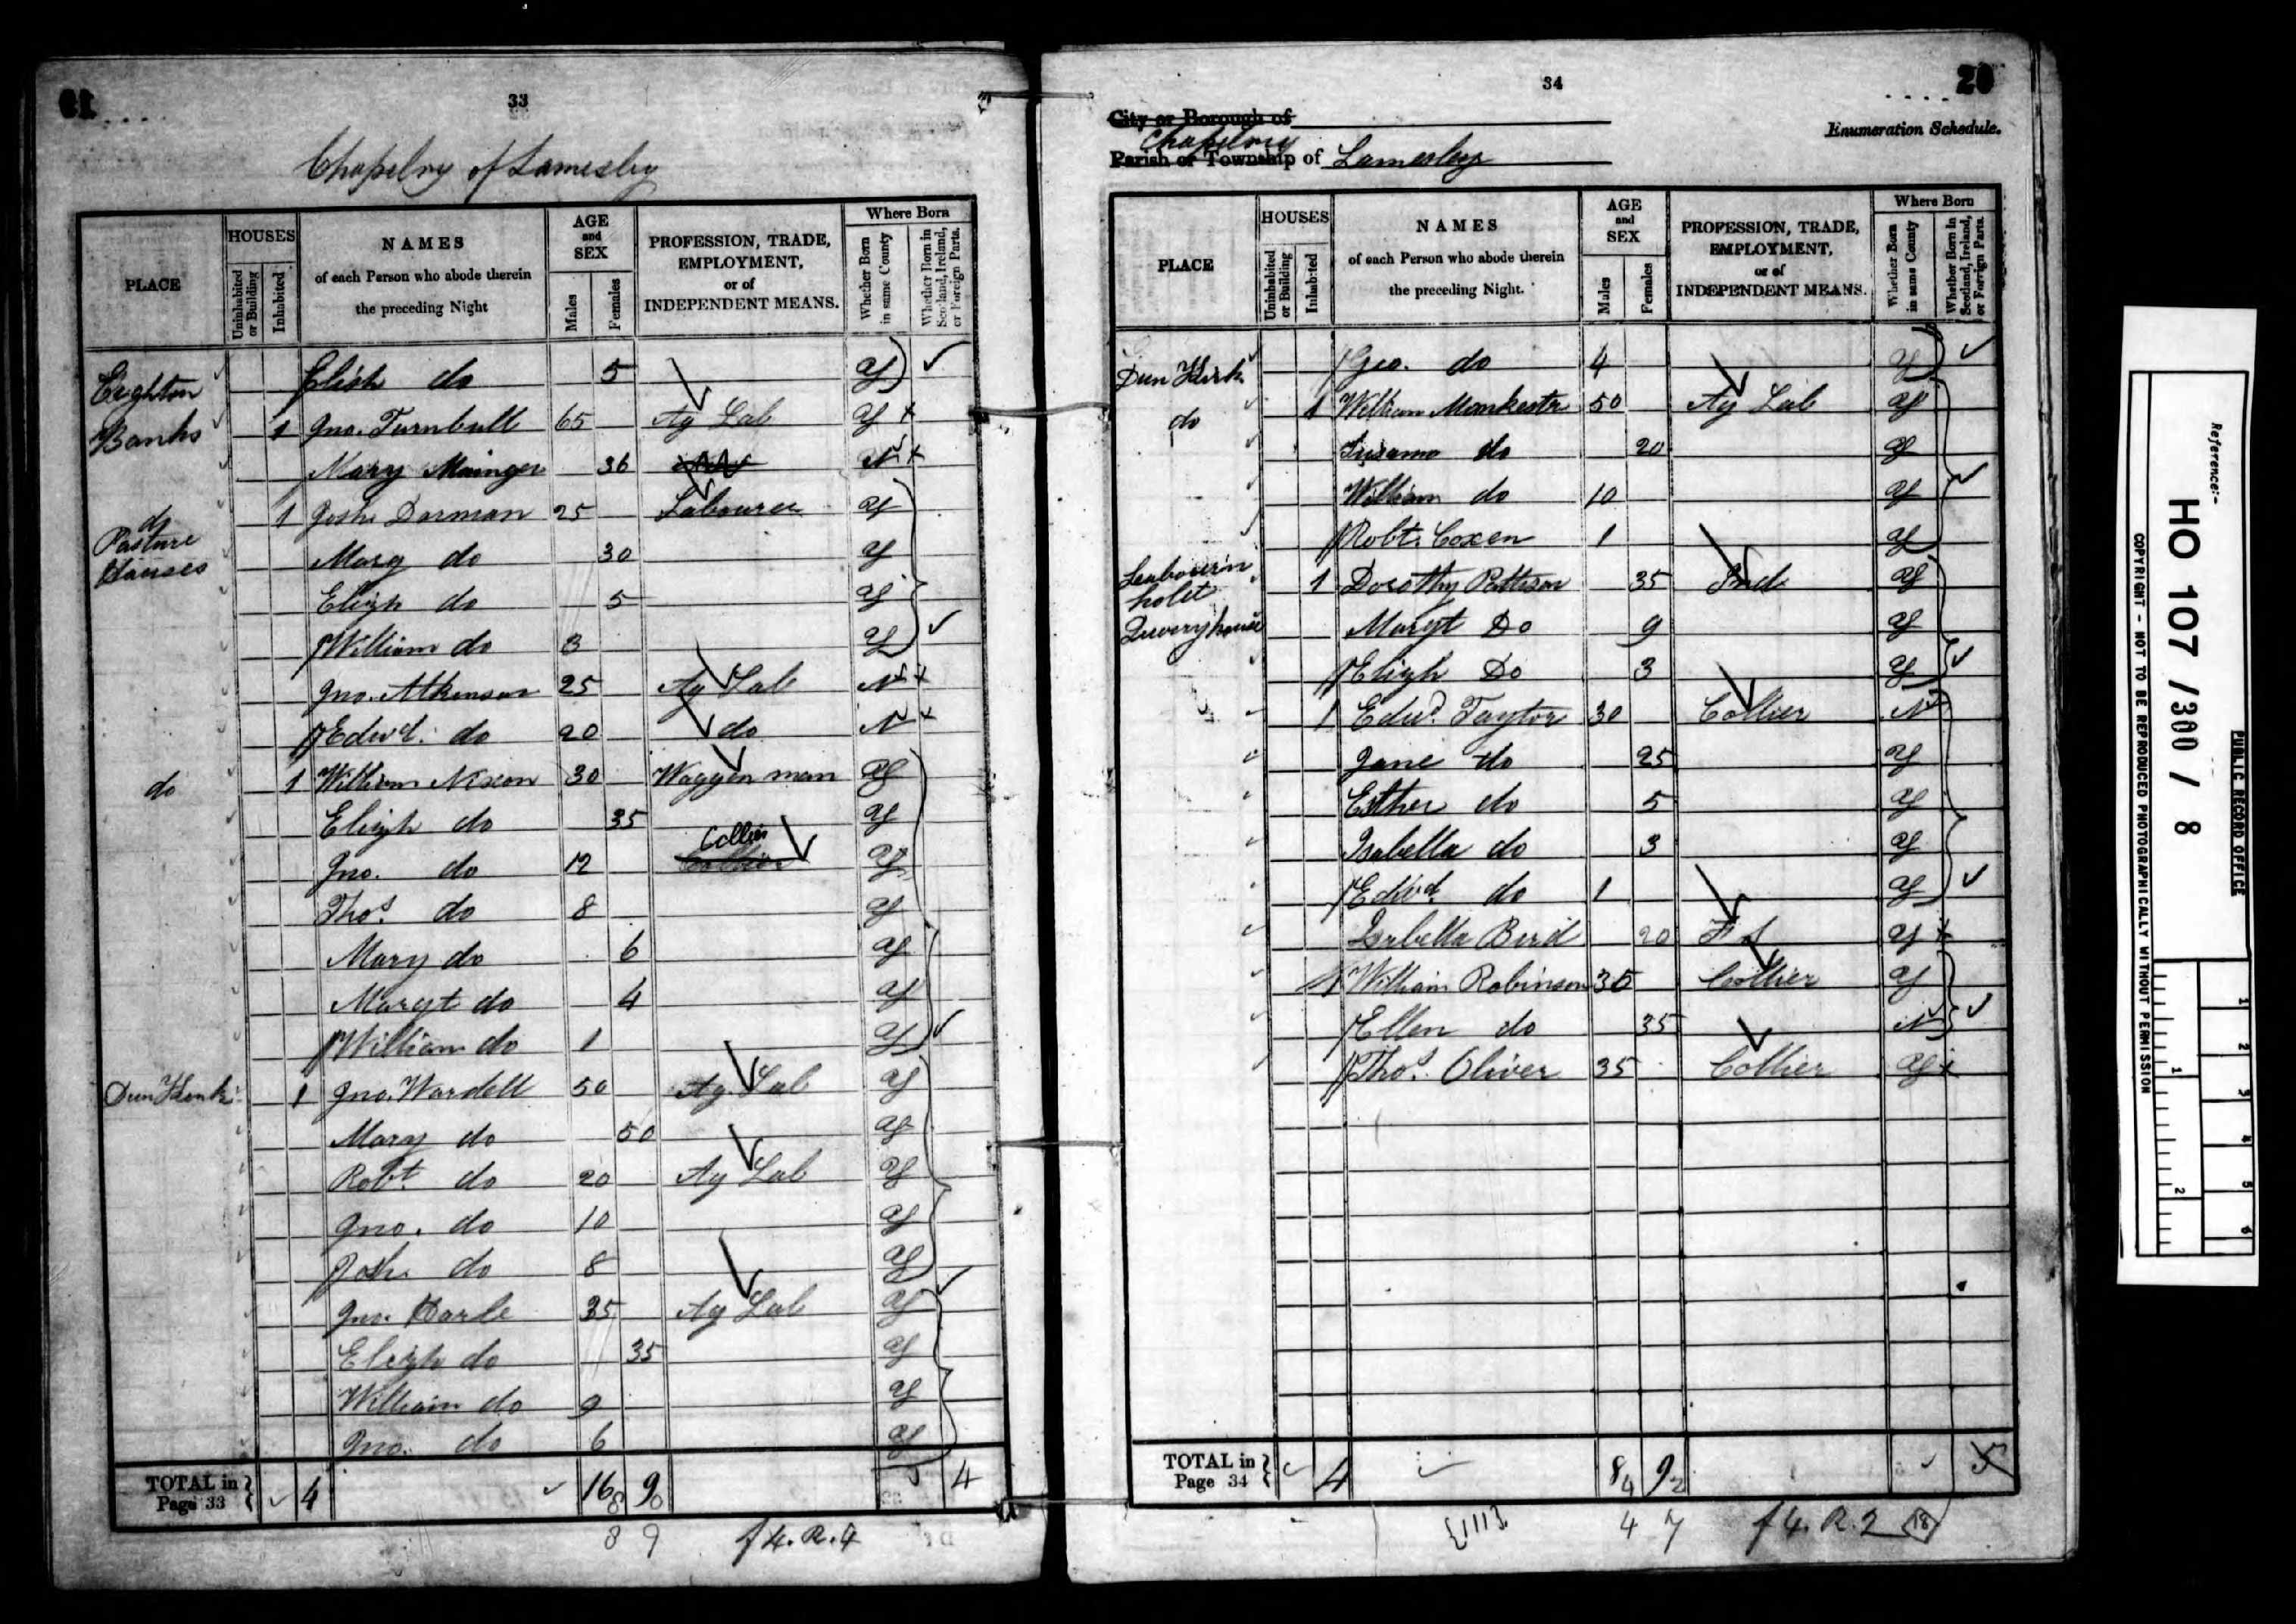 33
Chapelry of Lamesley
PLACE
HOUSES
Uninhabited or Building
Inhabited
NAMES
of each Person who abode therein
the preceding Night
AGE and SEX
Males
Females
PROFESSION, TRADE,
EMPLOYMENT,
or of
INDEPENDENT MEANS.
Where Born
Whether Born in same County
Whether Born in Scotland, Ireland, or Foreign Parts.
Eighton Elizh do 5 y
Banks 1 Jno. Turnbull 65 Ag Lab y
Mary Mainger 36 N
do Pasture Houses 1 Josh. Dorman 25 Labourer y
Mary do 30 y
Elizh do 5 y
William do 3 y
Jno. Atkinson 25 Ag Lab N
Edwd. do 20 do N
do 1 William Nixon 30 Waggon man y
Elizh do 35 y
Jno. do 12 Collier y
Thos. do 8 y
Mary do 6 y
Margt do 4 y
William do 1 y
Dun Kirk 1 Jno. Wardell 50 Ag. Lab y
Mary do 50 y
Robt. do 20 Ag Lab y
Jno. do 10 y
Josh. do 8 y
Jno. Harle 35 Ag Lab y
Elizh do 35 y
William do 9 y
Jno. do 6 y
TOTAL in Page 33 4 16 8 9 0 4
8 9 f4.R.4
34
20
City or Borough of
Enumeration Schedule.
Chapelry
Parish or Township of Lamesley
PLACE
HOUSES
Uninhabited or Building
Inhabited
NAMES
of each Person who abode therein
the preceding Night.
AGE and SEX
Males
Females
PROFESSION, TRADE,
EMPLOYMENT,
or of
INDEPENDENT MEANS.
Where Born
Whether Born in same County
Whether Born in Scotland, Ireland, or Foreign Parts.
Dun Kirk Geo. do 4 y
do 1 William Mankestr 50 Ag Lab y
Susanna do 20 y
William do 10 y
Robt. Coxen 1 y
1 Dorothy Pattison 35 Ind. y
Margt Do 9 y
Elizh Do 3 y
1 Edwd. Taylor 30 Collier N
Jane do 25 y
Esther do 5 y
Isabella do 3 y
Edwd. do 1 y
Isabella Bird 20 F S y
1 William Robinson 30 Collier y
Ellen do 35 N
Thos. Oliver 35 Collier y
TOTAL in Page 34 4 8 4 9 2 5
4 7 f4.R.2 18
Reference:-
HO 107 / 300 / 8
PUBLIC RECORD OFFICE
COPYRIGHT - NOT TO BE REPRODUCED PHOTOGRAPHICALLY WITHOUT PERMISSION
1 2 3 4 5 6
1 2